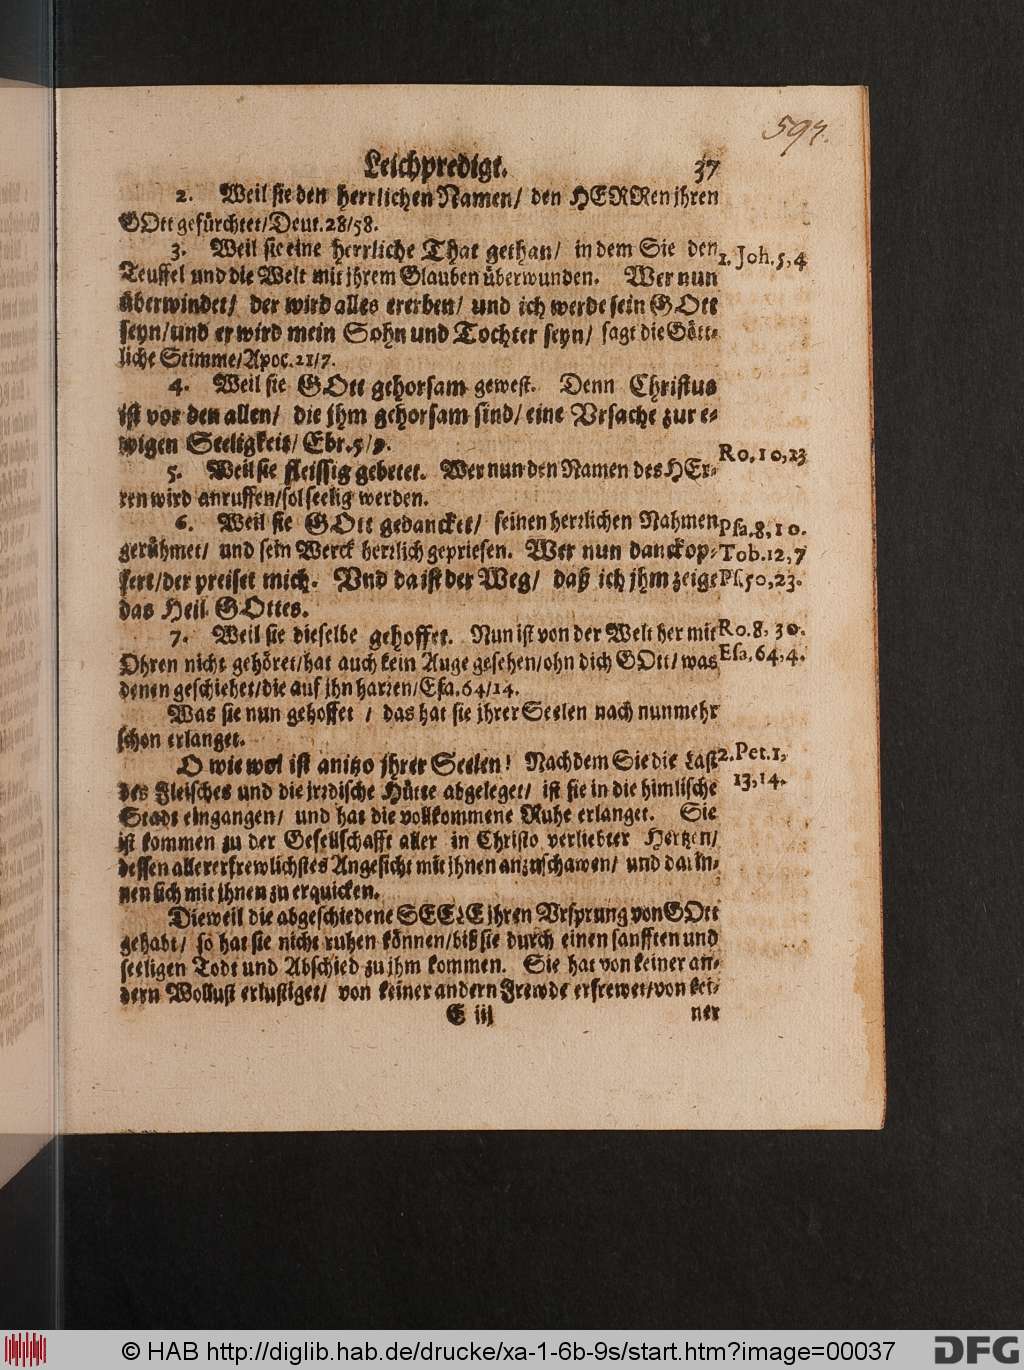 594.
Leichpredigt. 37
2. Weil sie den herrlichen Namen/ den HERRen jhren
GOtt gefürchtet/Deut.28/58.
3. Weil sie eine herrliche That gethan/ in dem Sie den
1. Joh. 5, 4
Teuffel und die Welt mit jhrem Glauben überwunden. Wer nun
überwindet/ der wird alles ererben/ und ich werde sein GOtt
seyn/und er wird mein Sohn und Tochter seyn/ sagt die Gött-
liche Stimme/Apoc.21/7.
4. Weil sie GOtt gehorsam gewest. Denn Christus
ist vor den allen/ die jhm gehorsam sind/ eine Vrsache zur e-
wigen Seeligkeit/ Ebr.5/9.
Ro. 10, 23
5. Weil sie fleissig gebetet. Wer nun den Namen des HEr-
ren wird anruffen/sol seelig werden.
6. Weil sie GOtt gedancket/ seinen herrlichen Nahmen
Psa. 8, 10.
gerühmet/ und sein Werck herrlich gepriesen. Wer nun danckop-
Tob. 12, 7
fert/der preiset mich. Vnd da ist der Weg/ daß ich jhm zeige
Ps. 50, 23.
das Heil GOttes.
7. Weil sie dieselbe gehoffet. Nun ist von der Welt her mit
Ro. 8, 30.
Ohren nicht gehöret/hat auch kein Auge gesehen/ohn dich GOtt/ was
Esa. 64, 4.
denen geschiehet/die auf jhn harren/Esa.64/14.
Was sie nun gehoffet / das hat sie jhrer Seelen nach nunmehr
schon erlanget.
O wie wol ist anitzo jhrer Seelen! Nachdem Sie die Last
2. Pet. 1,
13, 14.
des Fleisches und die jrrdische Hütte abgeleget/ ist sie in die himlische
Stadt eingangen/ und hat die vollkommene Ruhe erlanget. Sie
ist kommen zu der Gesellschafft aller in Christo verliebter Hertzen/
dessen allererfrewlichstes Angesicht mit jhnen anzuschawen/ und darin-
nen sich mit jhnen zu erquicken.
Dieweil die abgeschiedene SEELE jhren Vrsprung von GOtt
gehabt/ so hat sie nicht ruhen können/biß sie durch einen sanfften und
seeligen Todt und Abschied zu jhm kommen. Sie hat von keiner an-
dern Wollust erlustiget/ von keiner andern Frewde erfrewet/von kei-
E iij ner
© HAB http://diglib.hab.de/drucke/xa-1-6b-9s/start.htm?image=00037
DFG